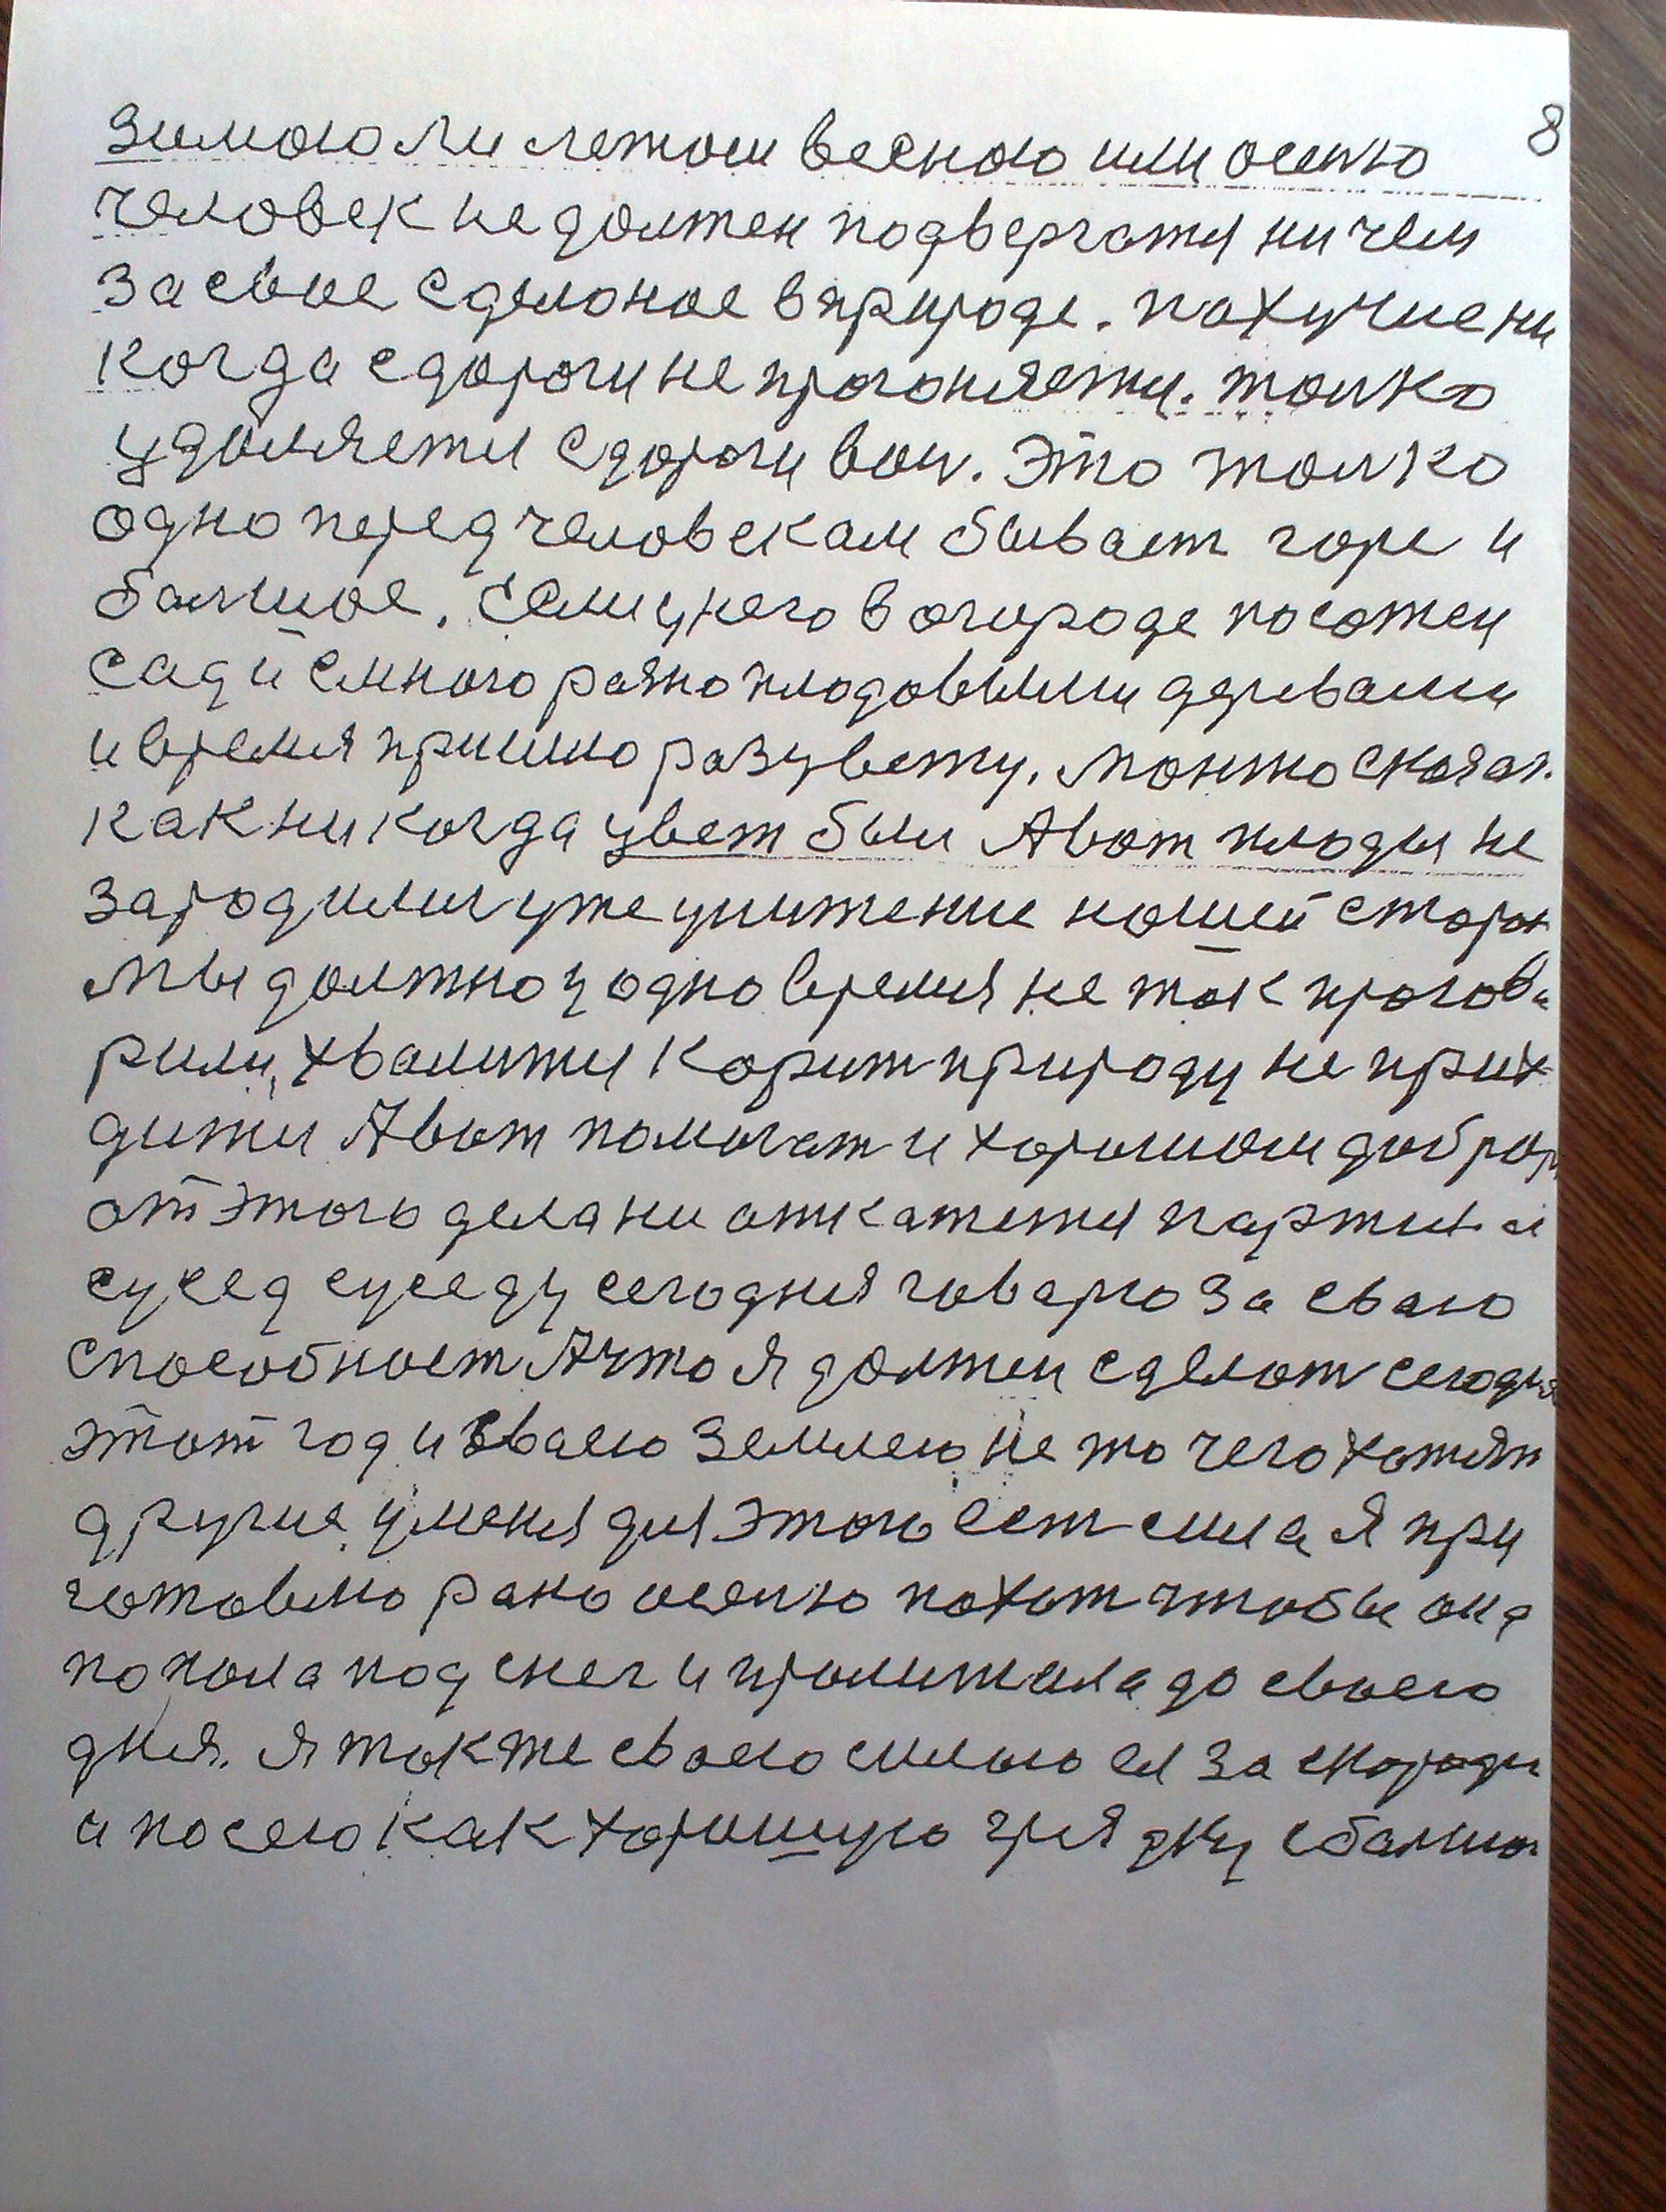 8
Зимою ли летом весною или осеню
человек не должен подвергатся ни чем
за свое сделоное в природе. похучие ни
когда с дороги не прогоняется. толко
удоляется с дороги вон. Это толко
одно перед человекам бывает горе и
балшое. Если у него в огороде посажен
сад и с много разно плодовыми деревами
и время пришло разцвету. можно сказат.
как ни когда цвет был А вот плоды не
зародились уже унижение нашей сторон
мы должно у одно время не так прогова
рили, хвалится корит природу не прих
дится А вот помогат и хорошом добром
от этого дела ни откажется партия и
сусед суседу сегодня говарю за сваю
способност А что я должен сделат сегодня
этот год и сваею землею не то чего хотят
другие у меня для этого ест сила я при
готовлю рано осенью пахот чтобы она
попала под снег и пролижала до своего
дня. я также своею силою ея за скороди
и посею как хорошую грядку с балшо